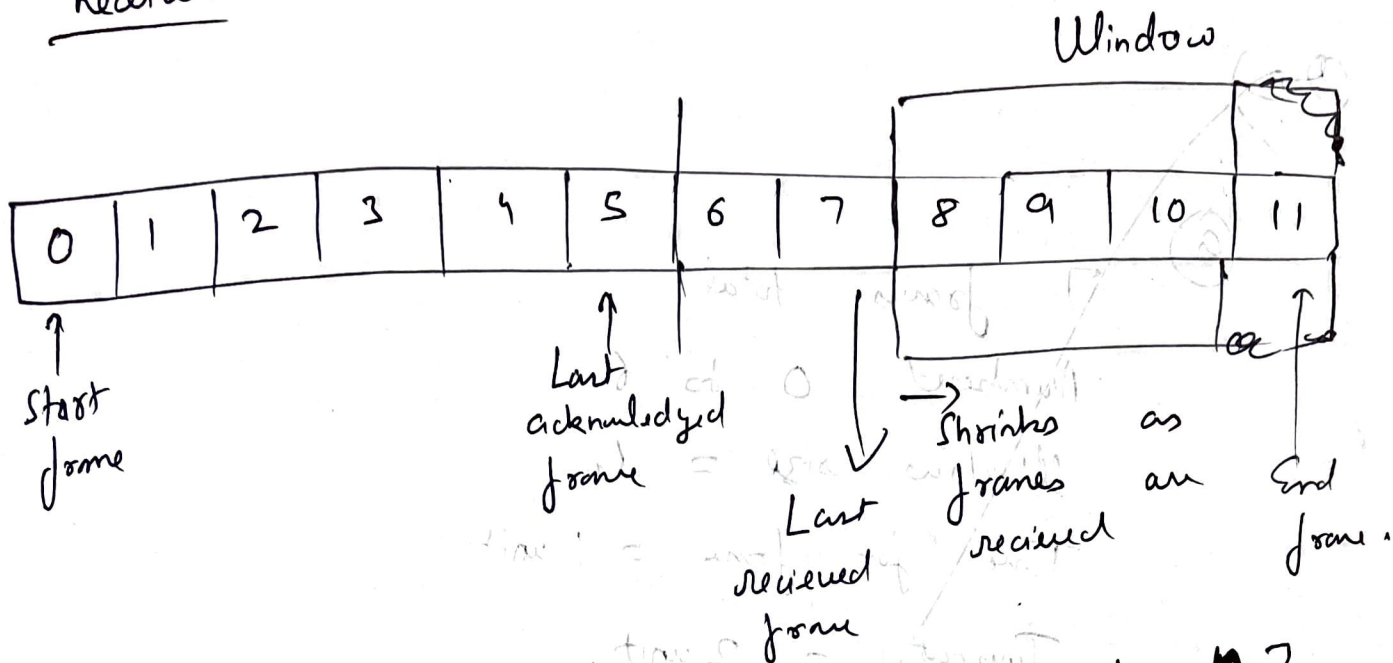 Window
0 1 2 3 4 5 6 7 8 9 10 11
Start
frame
Last
acknowledged
frame
Last
recieved
frame
Shrinks as
frames are
recieved
End
frame.